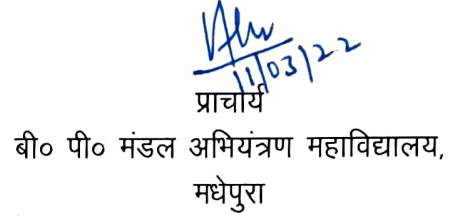 11/03/22
प्राचार्य
बी० पी० मंडल अभियंत्रण महाविद्यालय,
मधेपुरा